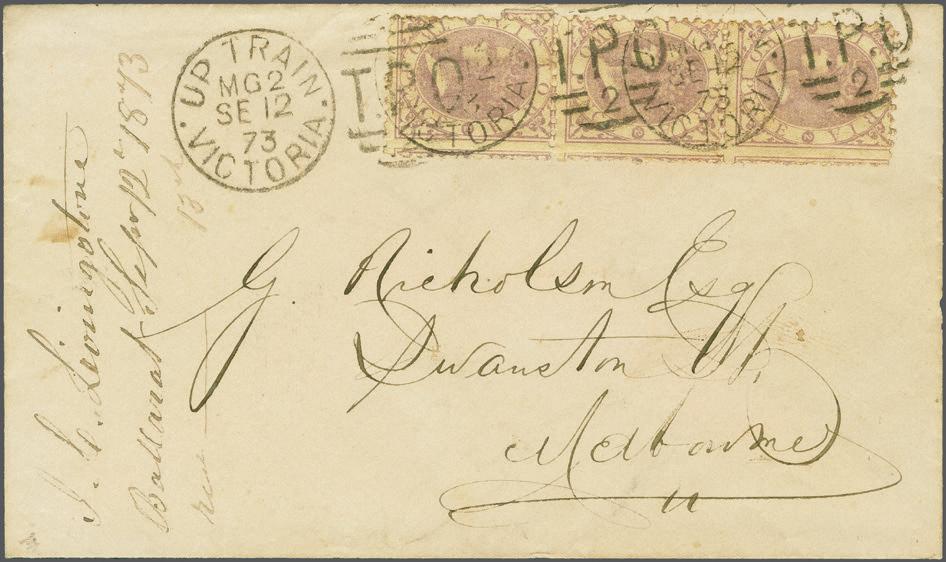 UP TRAIN
MG2
SE 12
73
VICTORIA
T.P.O.
T.P.O.
2
T.P.O
2
VICTORIA
VICTORIA
G. Nicholson Esq
Swanston St.
Melbourne
J. C. Livingstone
Ballarat Sep 12 1873
13